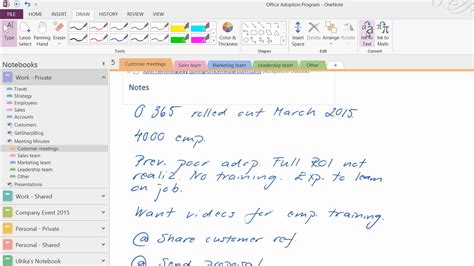 Office Adoption Program - OneNote
FILE HOME INSERT DRAW HISTORY REVIEW VIEW
Type Lasso Select Panning Hand Eraser
Color & Thickness
Insert Space
Delete
Arrange
Rotate
Ink to Text
Ink to Math
Tools Shapes Edit Convert
Notebooks
Customer meetings Sales team Marketing team Leadership team Other
Work - Private
Travel
Strategy
Employees
Sales
Accounts
Customers
GetSharpBlog
Meeting Minutes
Customer meetings
Sales team
Marketing team
Leadership team
Other
Presentations
Work - Shared
Company Event 2015
Personal - Private
Personal - Shared
Ulrika's Notebook
Notes
O 365 rolled out March 2015.
4000 emp.
Prev. poor adop. Full ROI not
realiz. No training. Exp. to learn
on job.
Want videos for emp training.
@ Share customer ref.
@ Send proposal